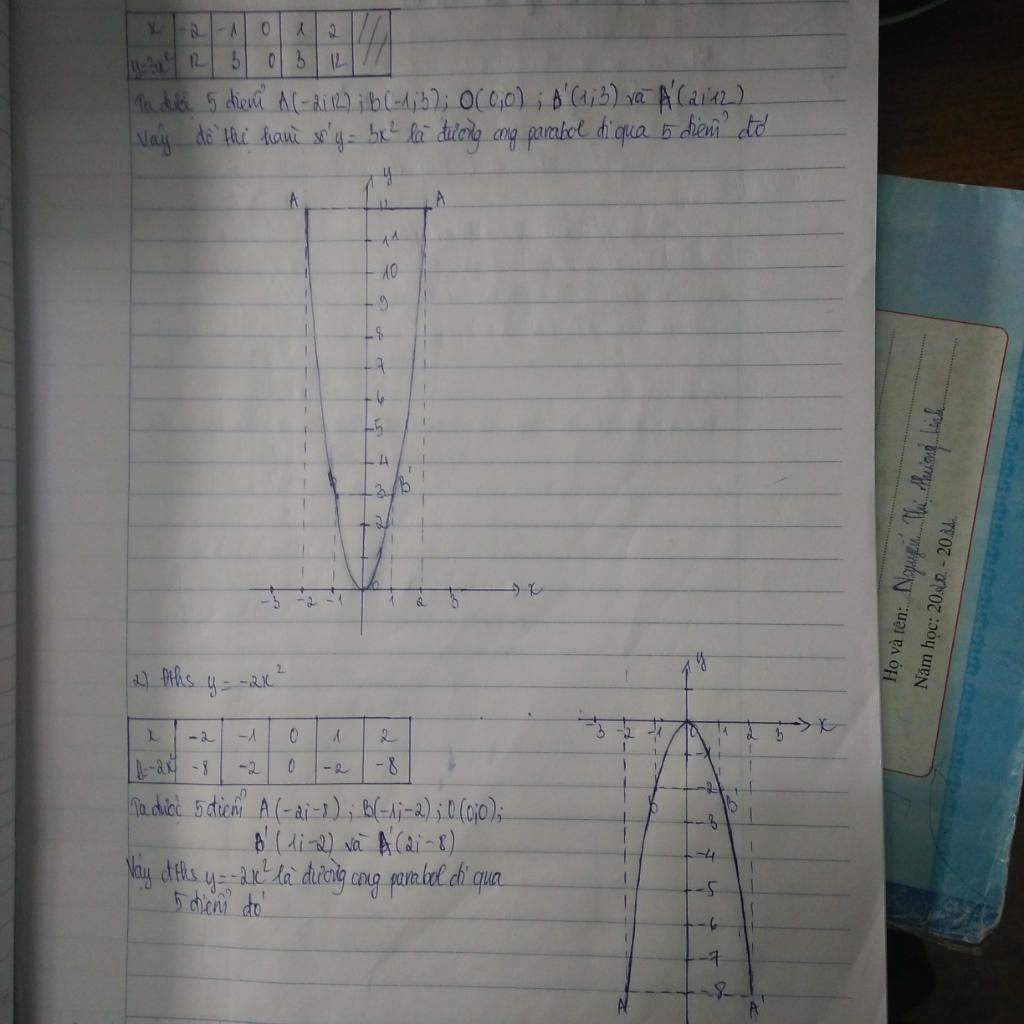 x -2 -1 0 1 2
y=3x² 12 3 0 3 12
Ta được 5 điểm A(-2;12); B(-1;3); O(0;0); B'(1;3) và A'(2;12)
Vậy đồ thị hàm số y = 3x² là đường cong parabol đi qua 5 điểm đó
y
A 12 A
11
10
9
8
7
6
5
4
B 3 B'
2
0
-3 -2 -1 1 2 3 x
2) Đths y = -2x²
x -2 -1 0 1 2
y=-2x² -8 -2 0 -2 -8
Ta được 5 điểm A(-2;-8); B(-1;-2); O(0;0);
B'(1;-2) và A'(2;-8)
Vậy đths y=-2x² là đường cong parabol đi qua
5 điểm đó
y
-3 -2 -1 0 1 2 3 x
-1
-2
B B'
-3
-4
-5
-6
-7
-8
A A'
Họ và tên: Nguyễn Thị Thường Linh
Năm học: 2020 - 2021